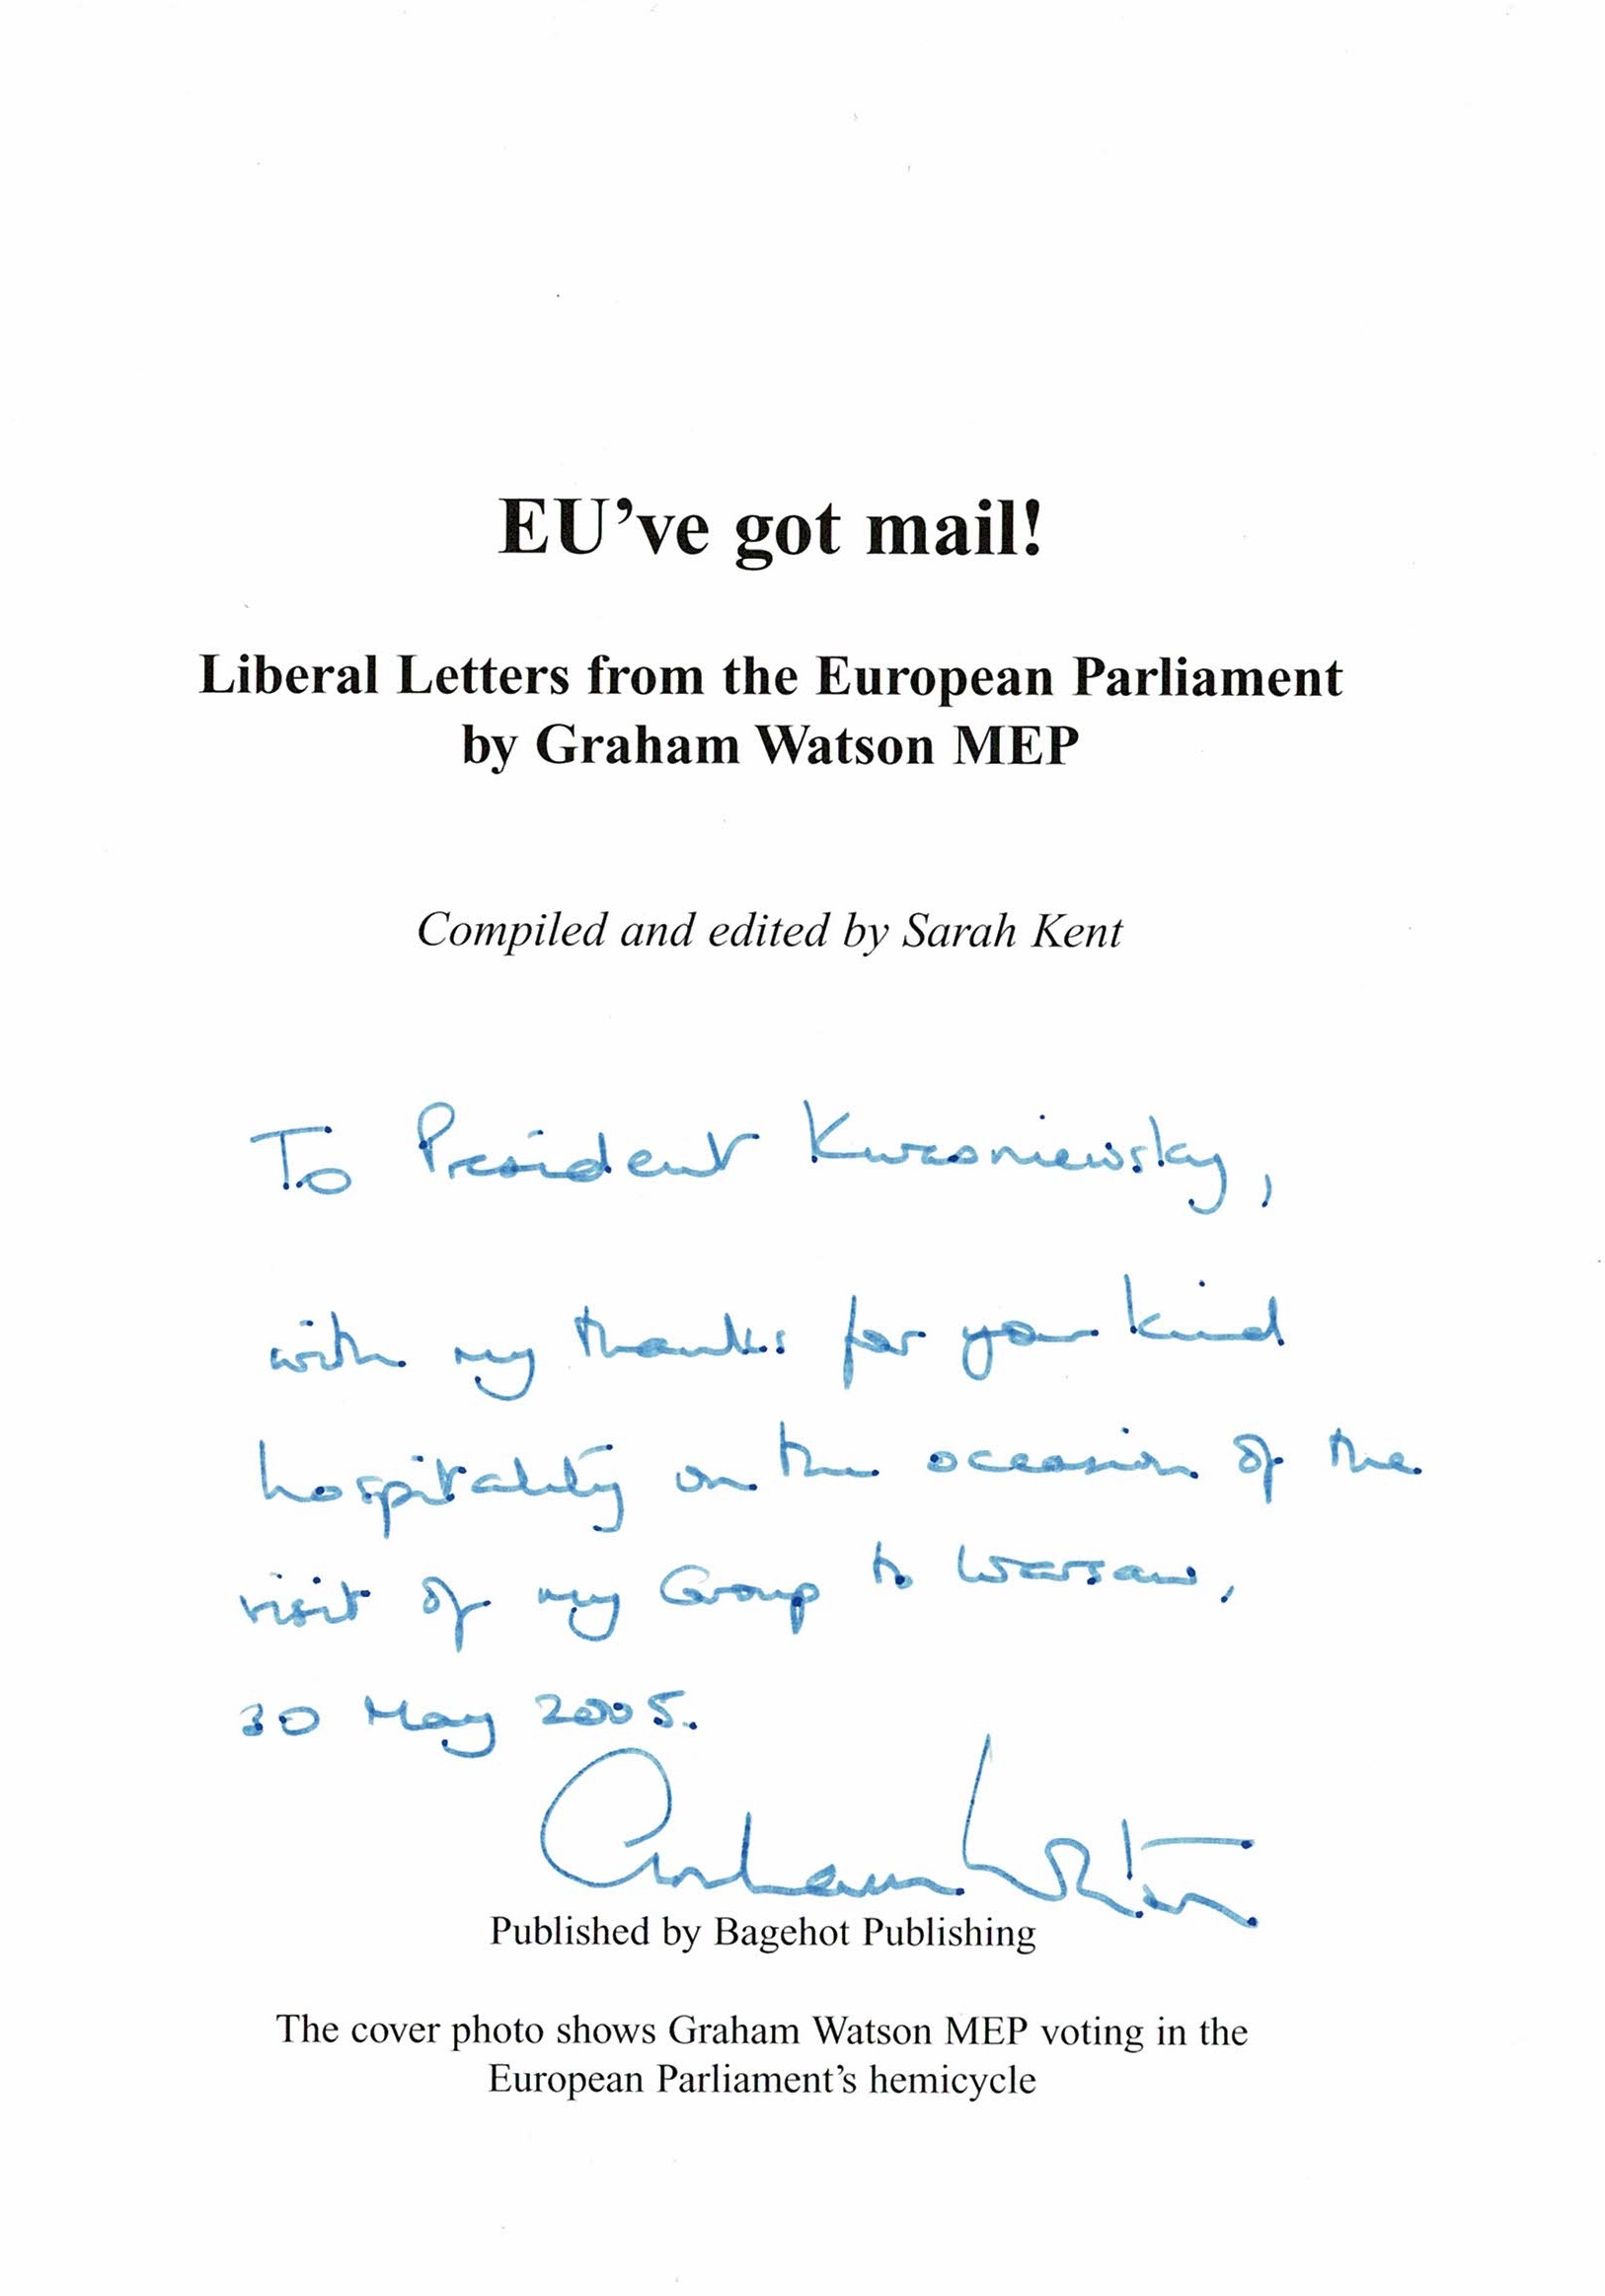 EU’ve got mail!
Liberal Letters from the European Parliament
by Graham Watson MEP
Compiled and edited by Sarah Kent
To President Kwasniewsky,
with my thanks for your kind
hospitality on the occasion of the
visit of my Group to Warsaw,
30 May 2005.
Graham Watson
Published by Bagehot Publishing
The cover photo shows Graham Watson MEP voting in the
European Parliament’s hemicycle